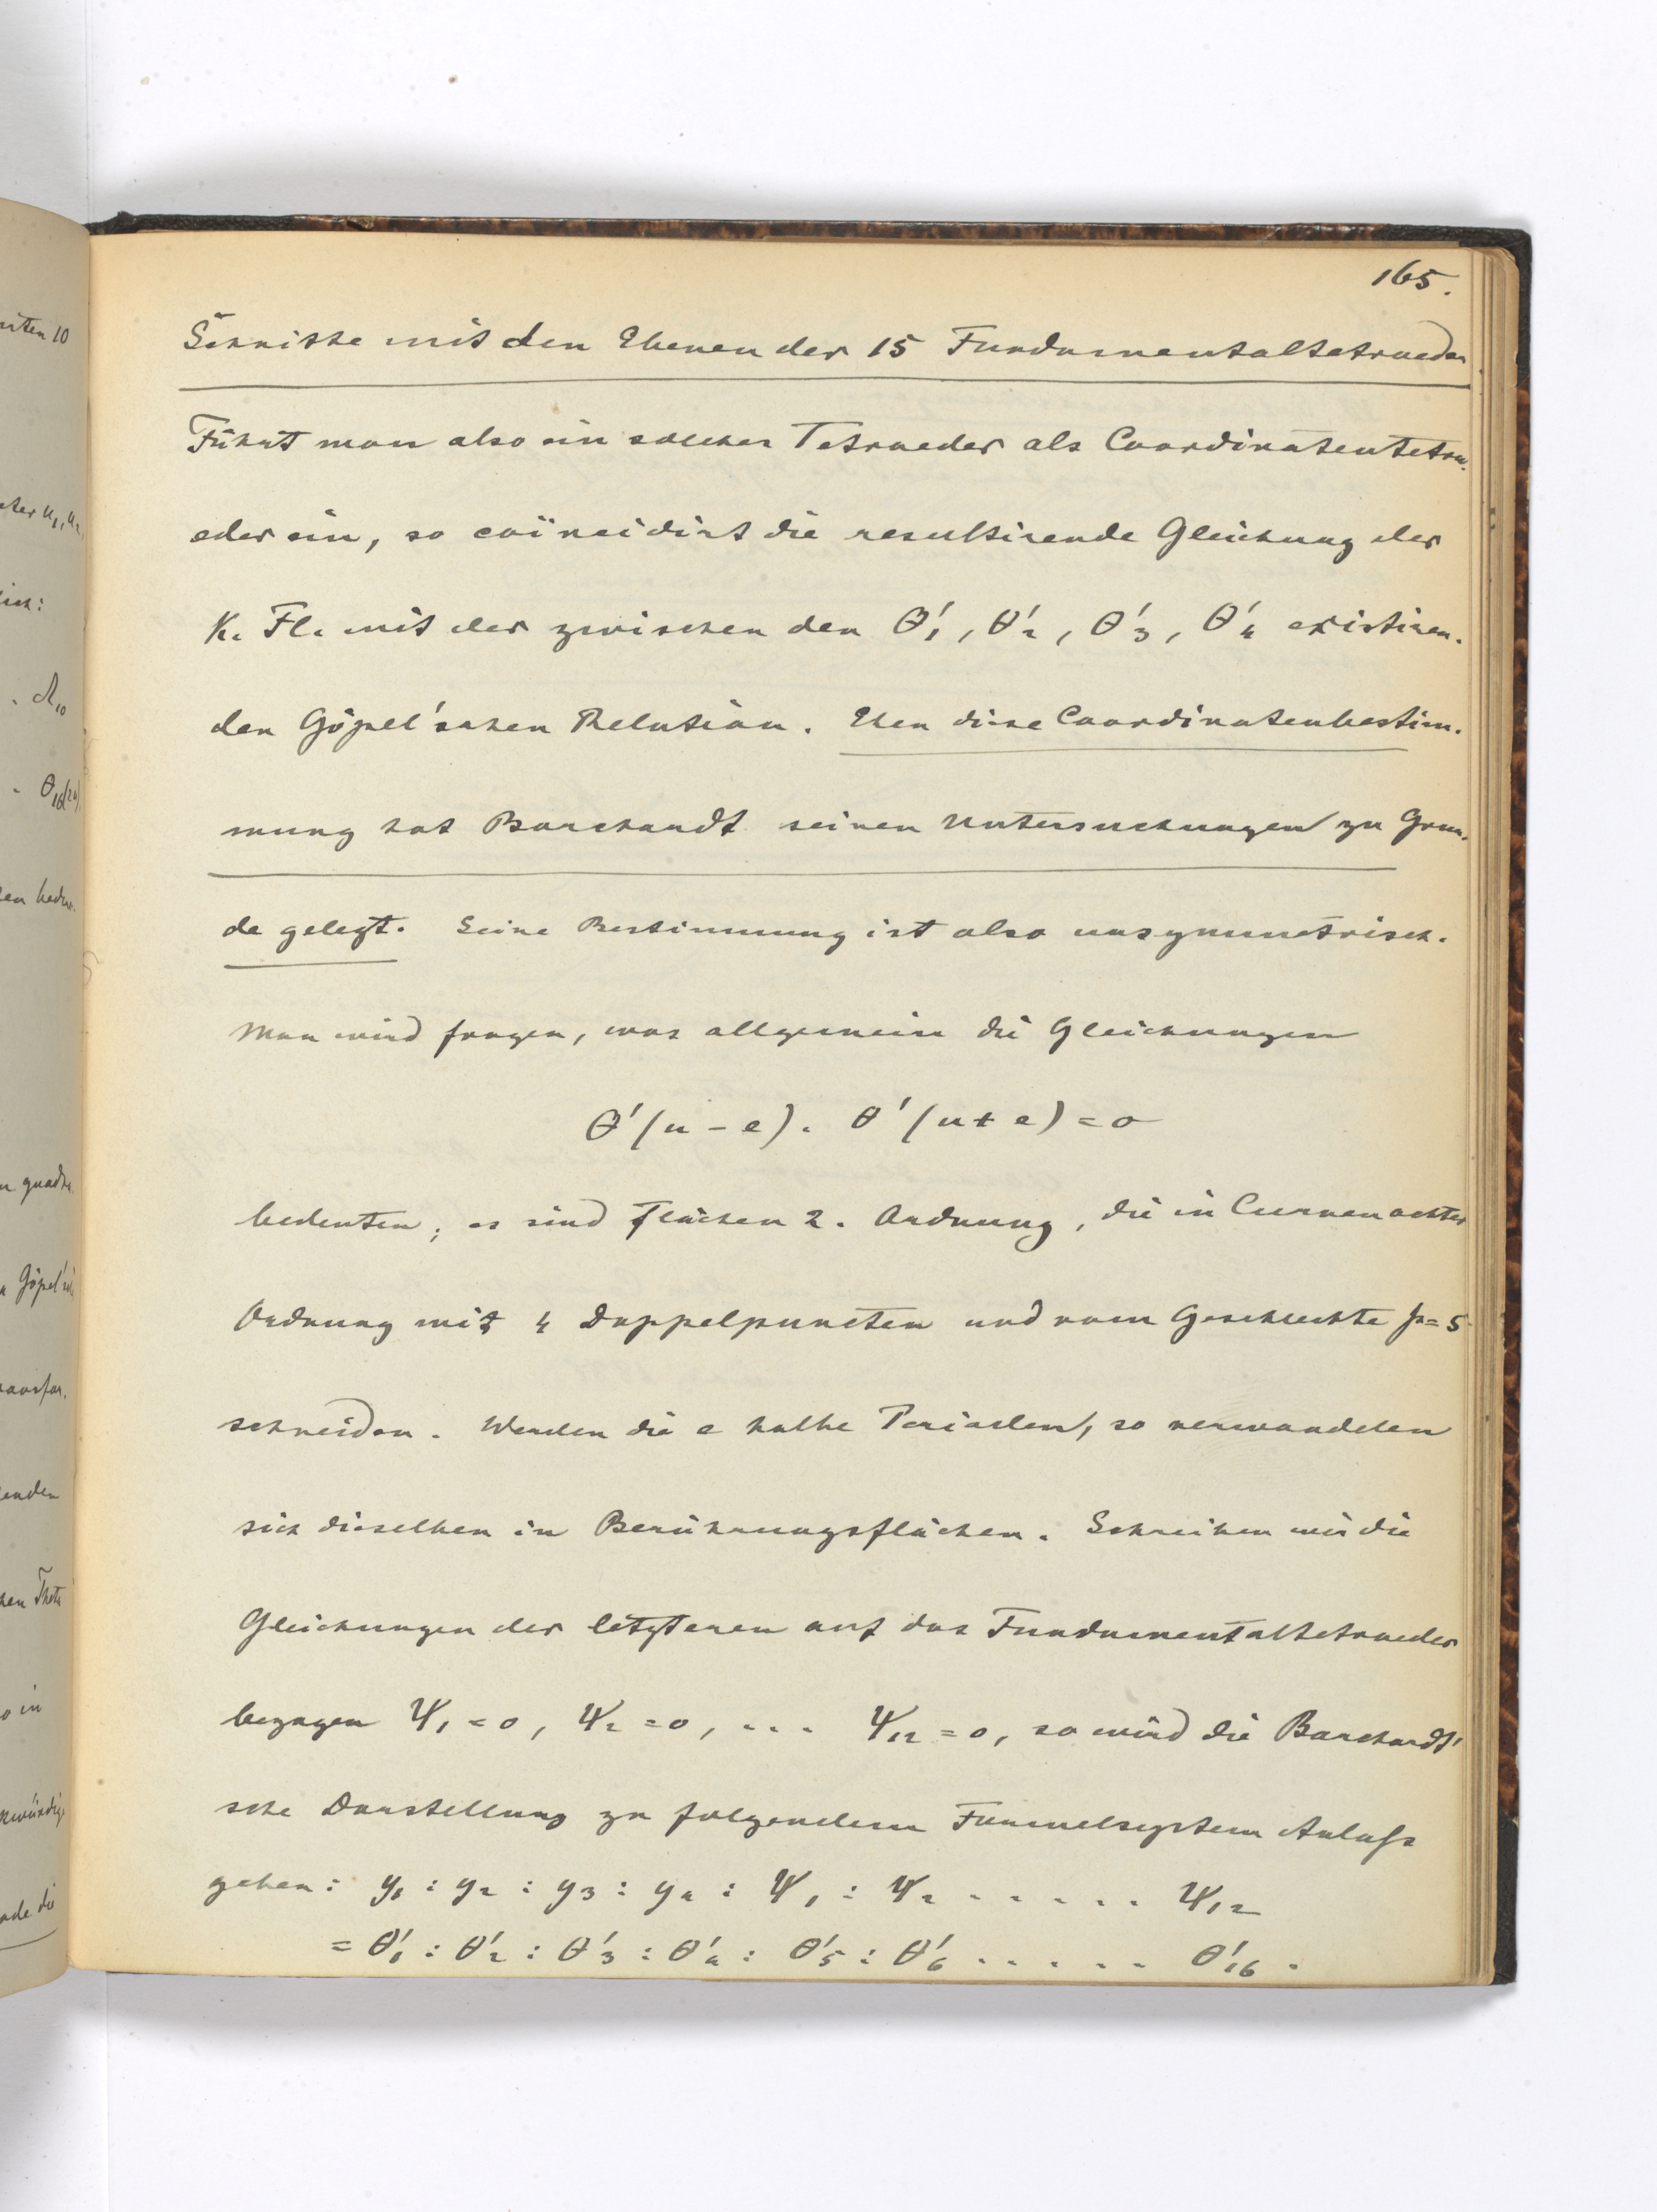 165.
Schnitte mit den Ebenen der 15 Fundamentaltetraeder
Führt man also ein solches Tetraeder als Coordinatentetra-
eder ein, so coïncidirt die resultirende Gleichung der
K. Fl. mit der zwischen den θ'₁, θ'₂, θ'₃, θ'₄ existiren-
den Göpel'schen Relation. Eben diese Coordinatenbestim-
mung hat Borchardt seinen Untersuchungen zu Grun-
de gelegt. Seine Bestimmung ist also unsymmetrisch.
Man wird fragen, was allgemein die Gleichungen
θ'(u - e). θ'(u + e) = 0
bedeuten; es sind Flächen 2. Ordnung, die in Curven achter
Ordnung mit 4 Doppelpuncten und vom Geschlechte p = 5
schneiden. Werden die e halbe Perioden, so verwandelen
sich dieselben in Berührungsflächen. Schreiben wir die
Gleichungen der letzteren auf das Fundamentaltetraeder
bezogen Ψ₁ = 0, Ψ₂ = 0, ... Ψ₁₂ = 0, so wird die Borchardt'
sche Darstellung zu folgendem Formelsystem Anlaß
geben: y₁ : y₂ : y₃ : y₄ : Ψ₁ : Ψ₂ ...... Ψ₁₂
= θ'₁ : θ'₂ : θ'₃ : θ'₄ : θ'₅ : θ'₆ ...... θ'₁₆ .